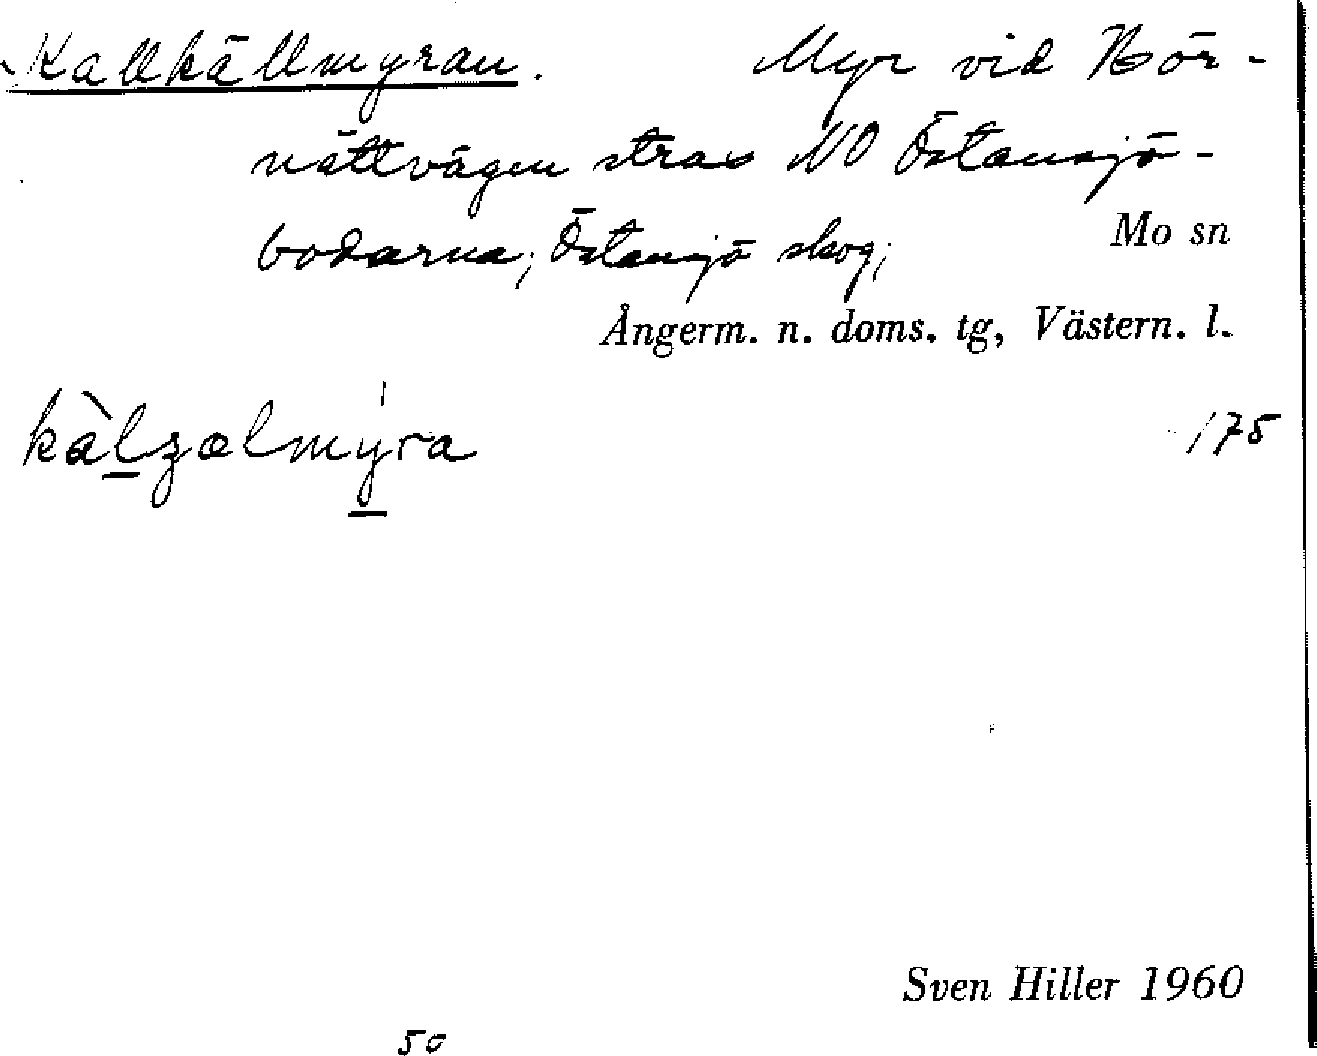 Kallkällmyran. Myr vid Hör-
nättvägen strax NO Östansjö-
bodarna; Östansjö skog; Mo sn
Ångerm. n. doms. tg, Västern. l.
175
Sven Hiller 1960
50